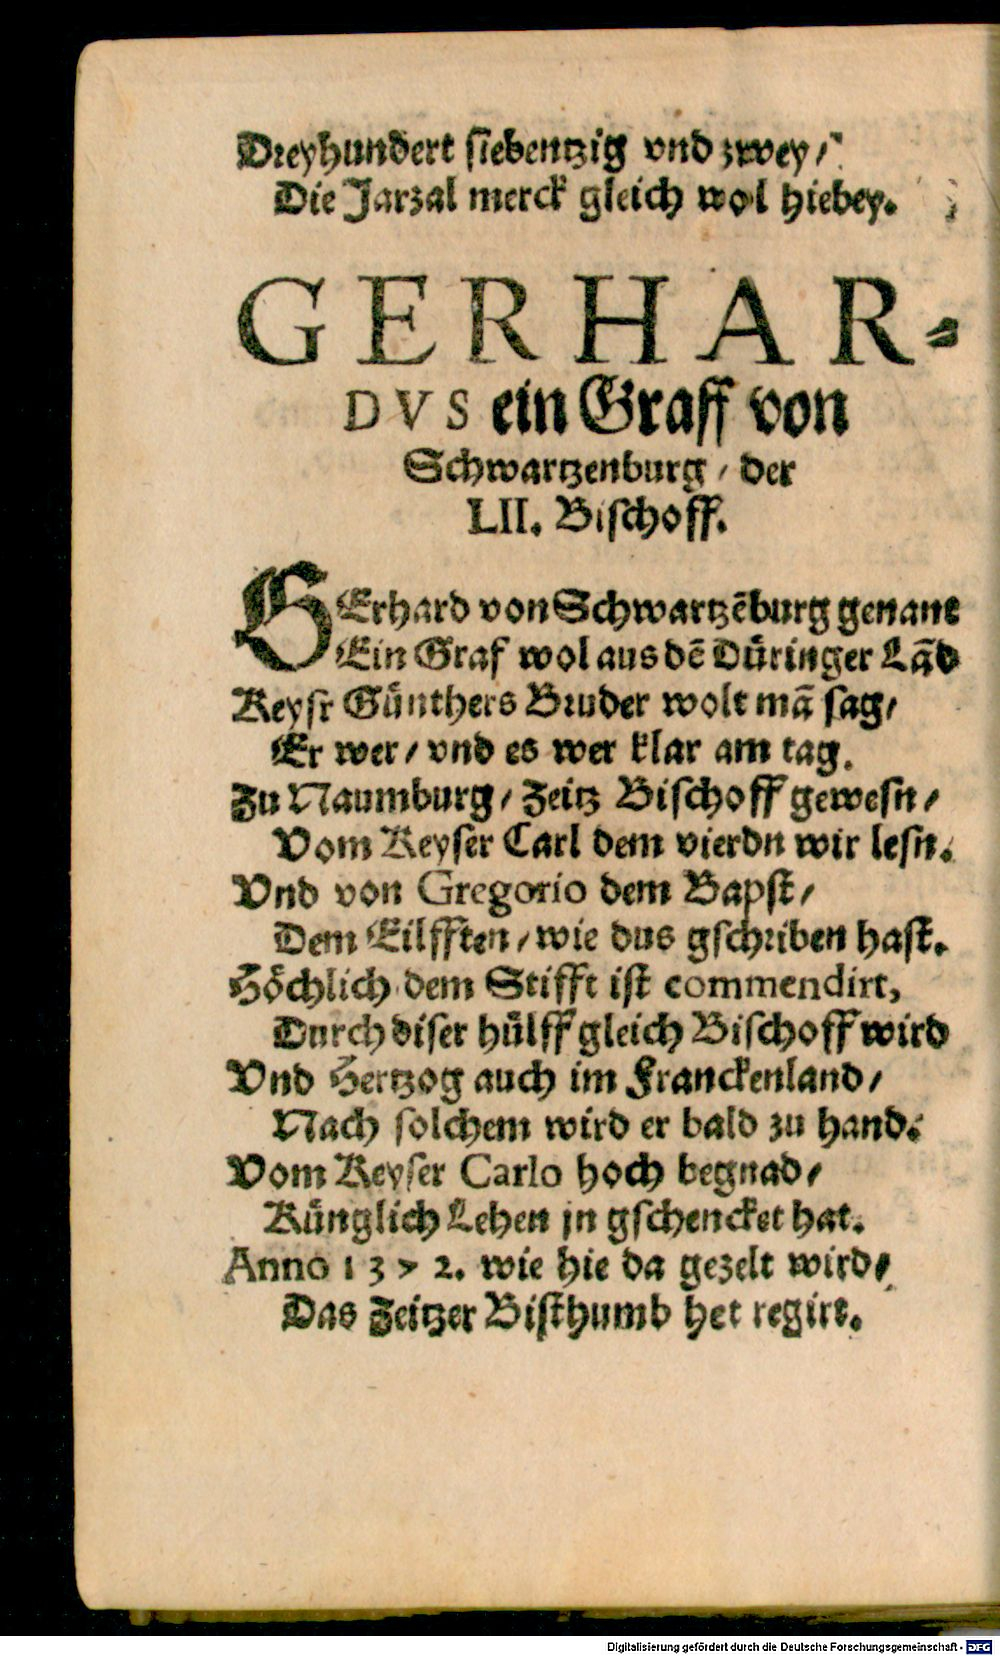 Dreyhundert siebentzig vnd zwey/
Die Jarzal merck gleich wol hiebey.
GERHAR-
DVS ein Graff von
Schwartzenburg / der
LII. Bischoff.
GErhard von Schwartzēburg genant
Ein Graf wol aus dē Dűringer Lād
Keysr Gűnthers Bruder wolt mā sag/
Er wer / vnd es wer klar am tag.
Zu Naumburg / Zeitz Bischoff gewesn /
Vom Keyser Carl dem vierdn wir lesn.
Vnd von Gregorio dem Bapst /
Dem Eilfften / wie dus gschriben hast.
Höchlich dem Stifft ist commendirt,
Durch diser hűlff gleich Bischoff wird
Vnd Hertzog auch im Franckenland /
Nach solchem wird er bald zu hand.
Vom Keyser Carlo hoch begnad /
Kűnglich Lehen jn gschencket hat.
Anno 1372. wie hie da gezelt wird /
Das Zeitzer Bisthumb het regirt.
Digitalisierung gefördert durch die Deutsche Forschungsgemeinschaft - DFG